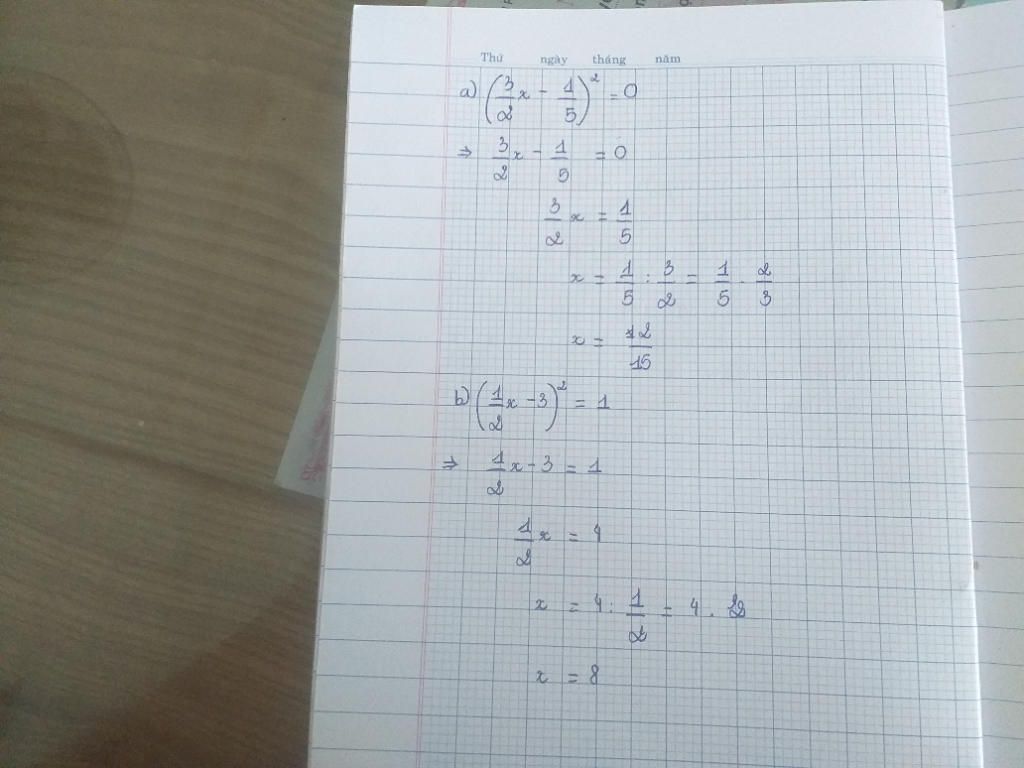 Thứ ngày tháng năm
a) (3/2 x - 1/5)² = 0
⇒ 3/2 x - 1/5 = 0
3/2 x = 1/5
x = 1/5 : 3/2 = 1/5 . 2/3
x = 2/15
b) (1/2 x - 3)² = 1
⇒ 1/2 x - 3 = 1
1/2 x = 4
x = 4 : 1/2 = 4 . 2
x = 8